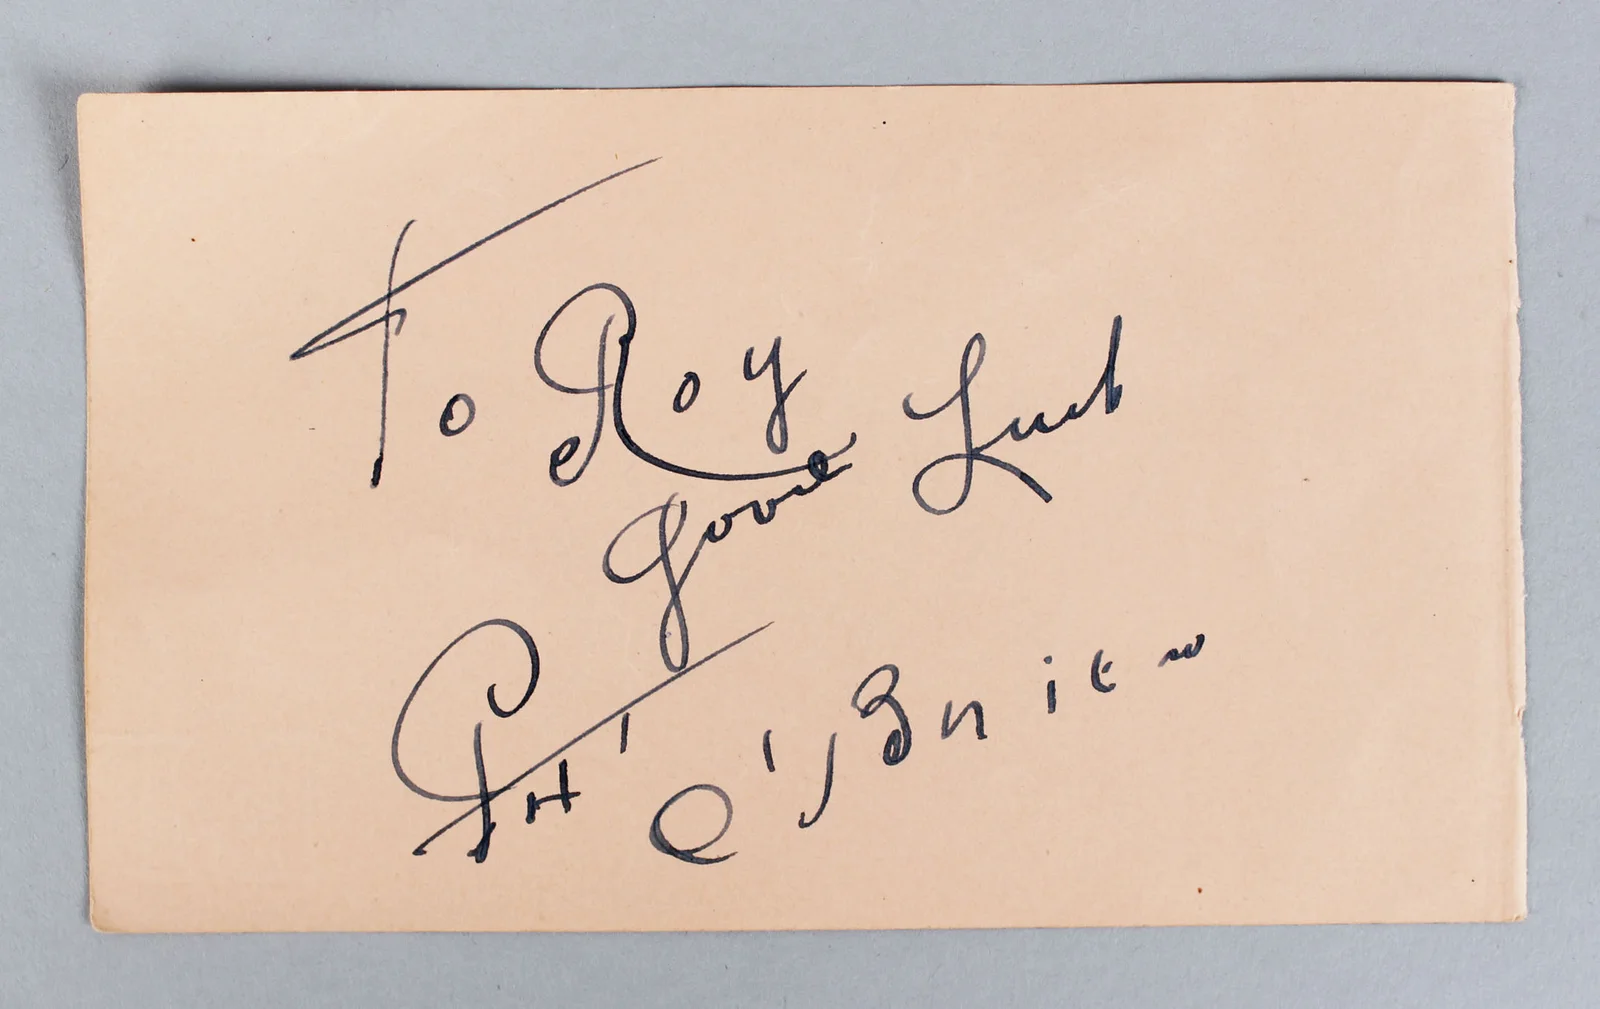 To Roy
Good Luck
Pat O'Brien